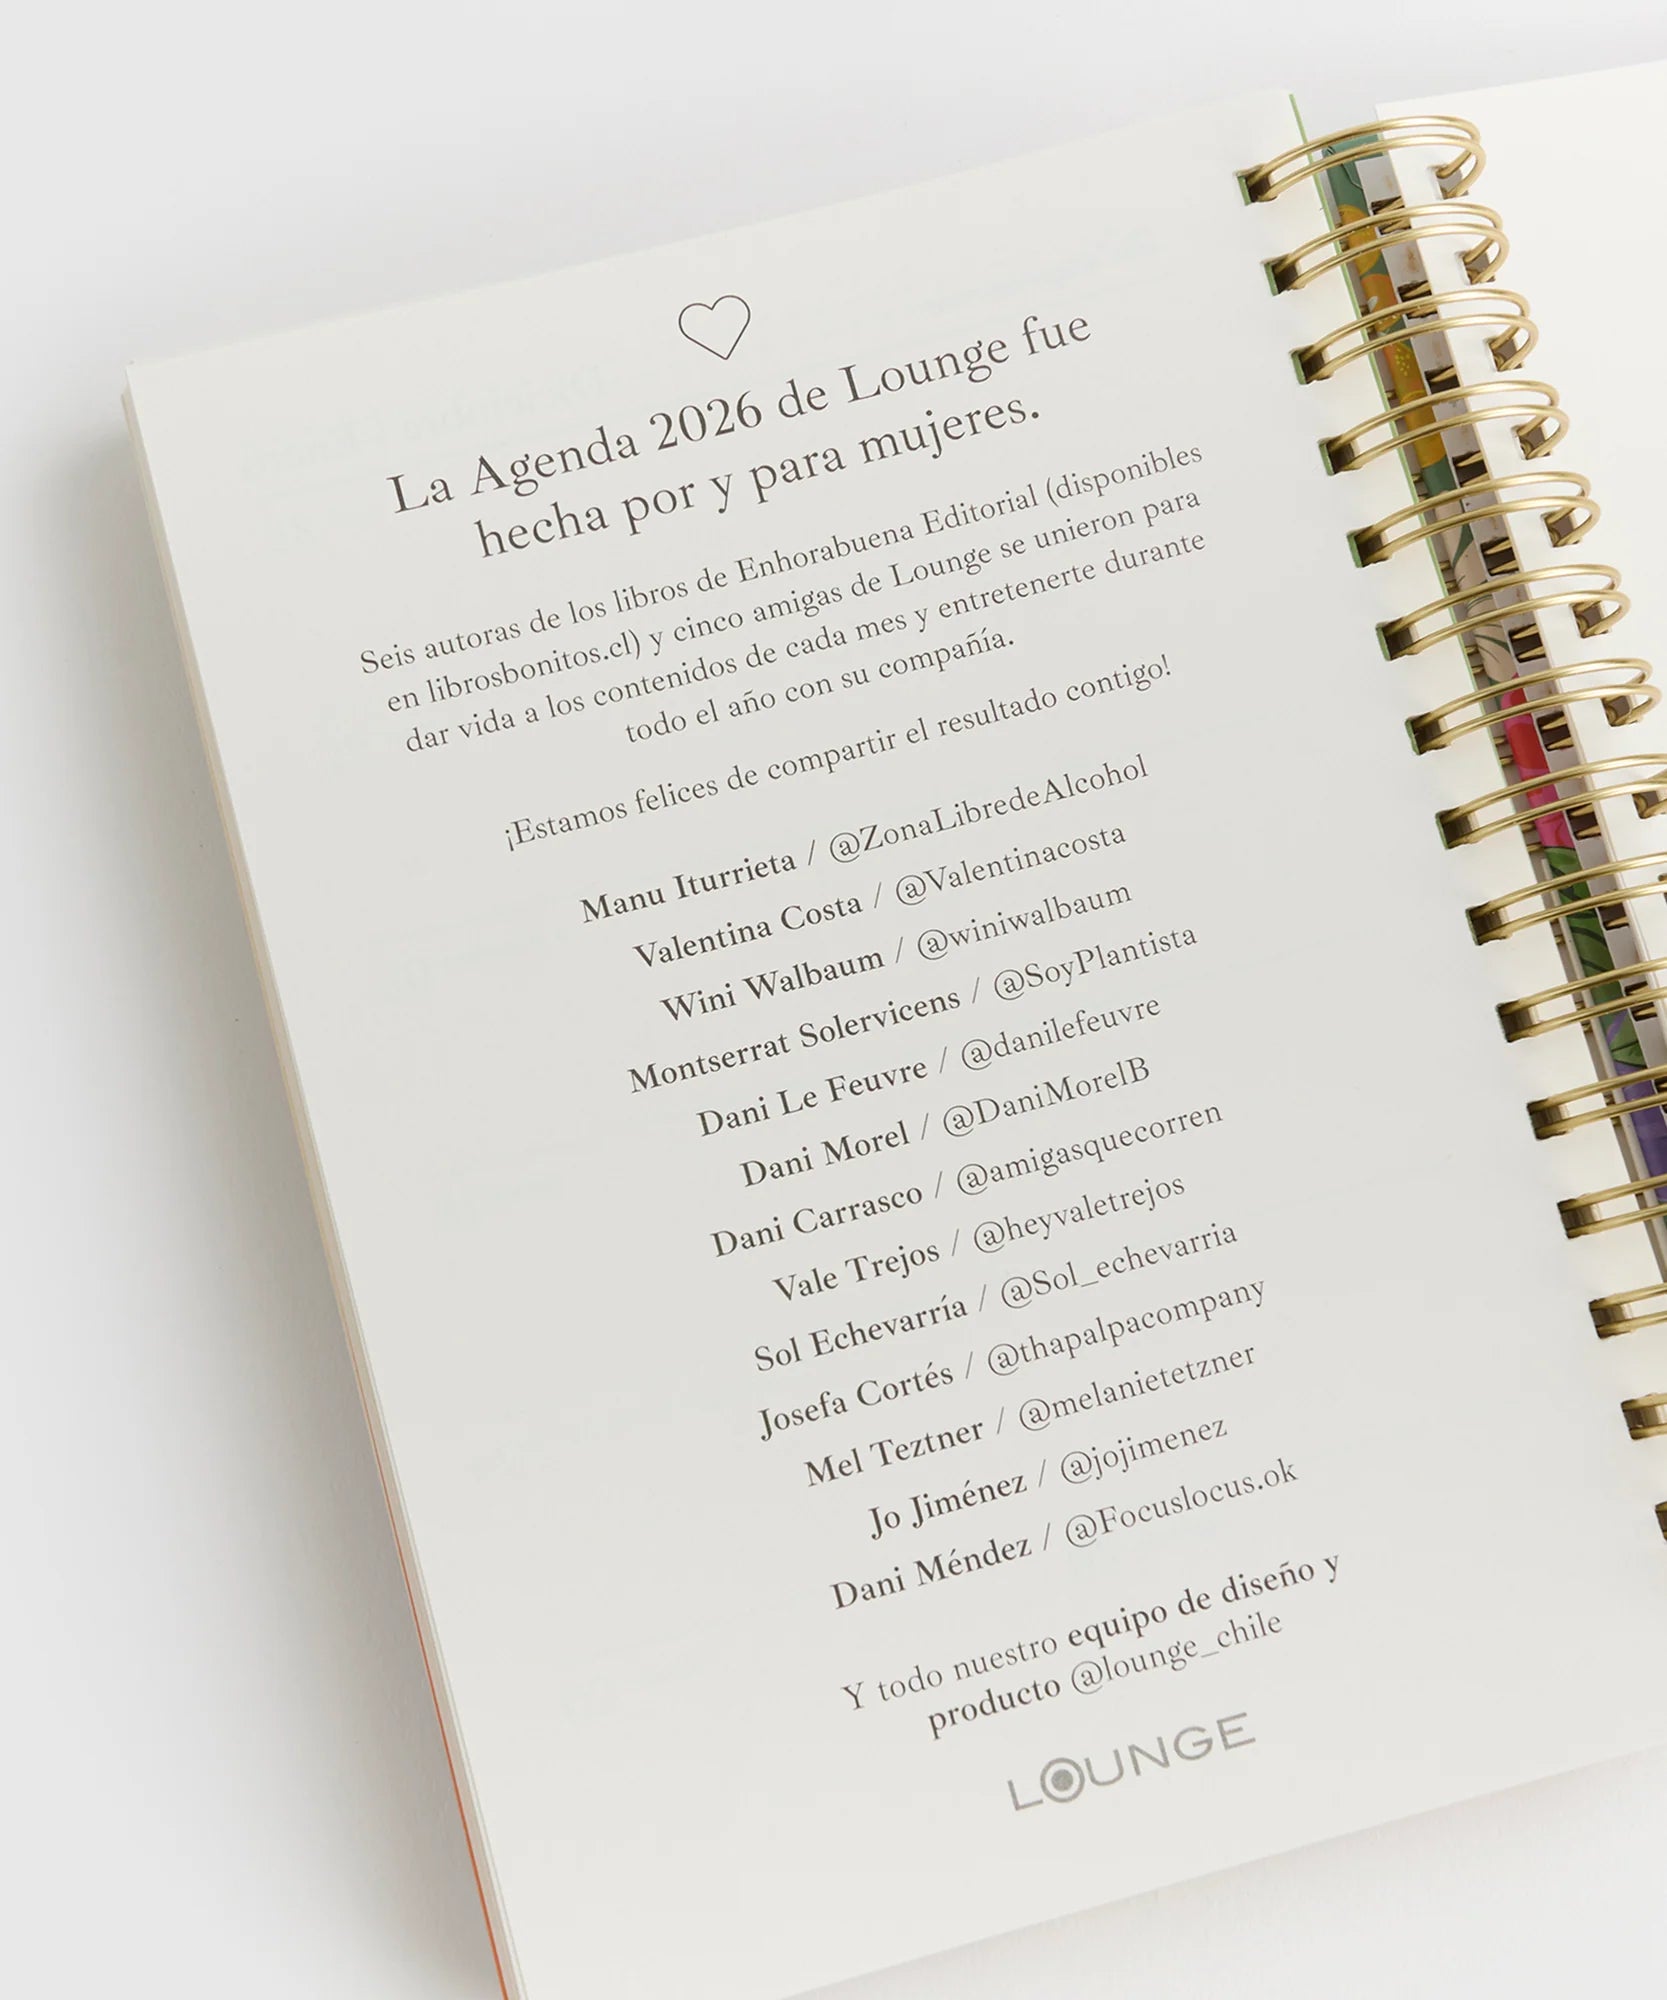 La Agenda 2026 de Lounge fue
hecha por y para mujeres.
Seis autoras de los libros de Enhorabuena Editorial (disponibles
en librosbonitos.cl) y cinco amigas de Lounge se unieron para
dar vida a los contenidos de cada mes y entretenerte durante
todo el año con su compañía.
¡Estamos felices de compartir el resultado contigo!
Manu Iturrieta / @ZonaLibredeAlcohol
Valentina Costa / @Valentinacosta
Wini Walbaum / @winiwalbaum
Montserrat Solervicens / @SoyPlantista
Dani Le Feuvre / @danilefeuvre
Dani Morel / @DaniMorelB
Dani Carrasco / @amigasquecorren
Vale Trejos / @heyvaletrejos
Sol Echevarría / @Sol_echevarria
Josefa Cortés / @thapalpacompany
Mel Teztner / @melanietetzner
Jo Jiménez / @jojimenez
Dani Méndez / @Focuslocus.ok
Y todo nuestro equipo de diseño y
producto @lounge_chile
LOUNGE